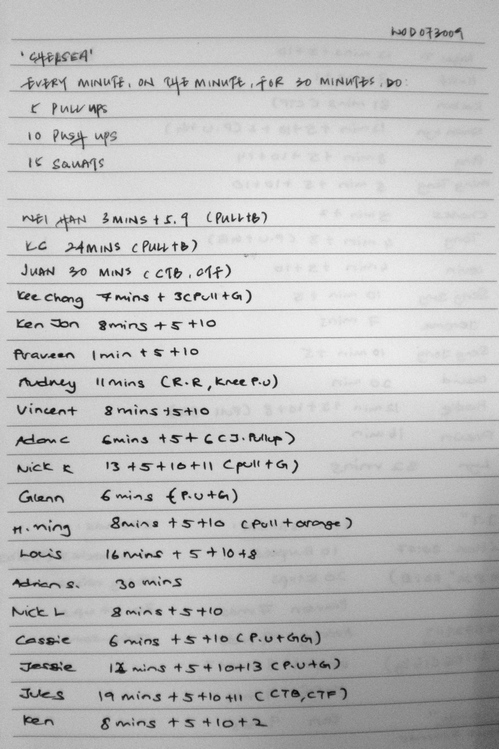 WOD 073009
'CHELSEA'
EVERY MINUTE, ON THE MINUTE, FOR 30 MINUTES, DO:
5 PULL UPS
10 PUSH UPS
15 SQUATS
WEI HAN 3MINS + 5.9 (PULL+B)
KC 24MINS (PULL+B)
JUAN 30 MINS (CTB, CTF)
Kee Chong 7mins + 3(Pull+G)
Ken Jon 8mins + 5 +10
Praveen 1min + 5 +10
Audney 11mins (R.R, Knee P.U)
Vincent 8mins +5+10
Adam C 6mins +5+ 6 (J.Pullup)
Nick K 13 +5+10+11 (pull+G)
Glenn 6 mins (P.U+G)
H.ning 8mins + 5+10 (Pull + orange)
Louis 16mins + 5 +10+8
Adrian S. 30 mins
Nick L 8mins +5+10
Cassie 6 mins +5+10 (P.U+GG)
Jessie mins +5+10+13 (P.U+G)
Jules 19 mins +5+10+11 (CTB,CTF)
Ken 8mins +5+10+2